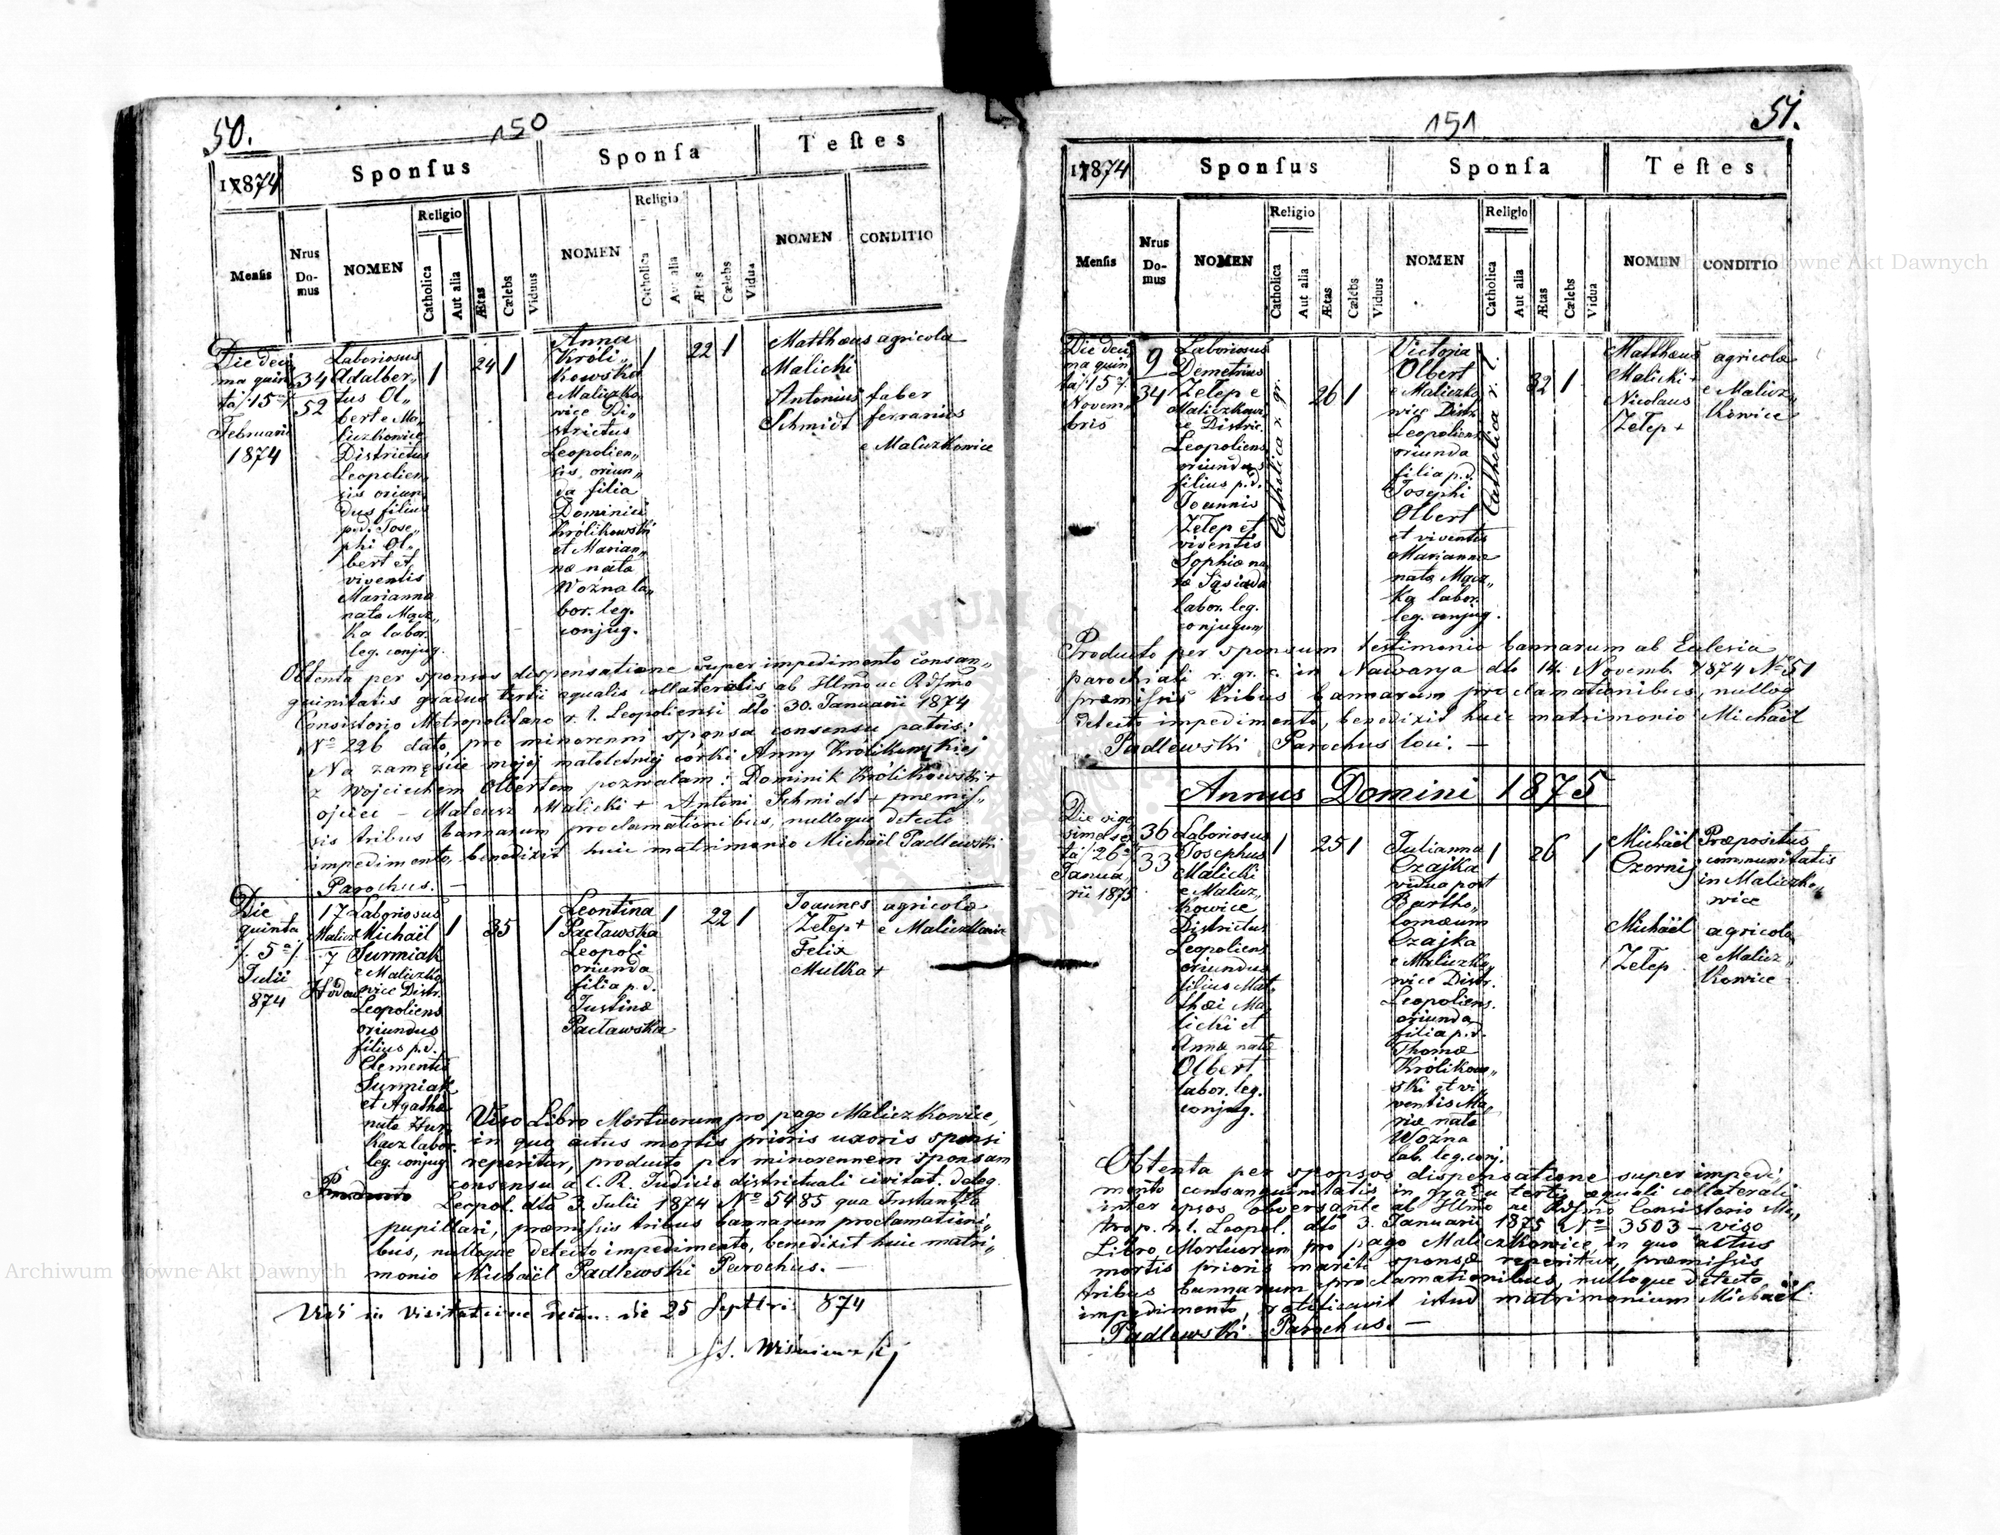 50.
150
1874
Sponſus
Sponſa
Teſtes
Religio
Religio
Mensis
Nrus Domus
NOMEN
Catholica
Aut alia
Ætas
Cælebs
Viduus
NOMEN
Catholica
Aut alia
Ætas
Cælebs
Vidua
NOMEN
CONDITIO
Die deci
ma quin
ta /:15ª:/
Februarii
1874
34
52
Laboriosus
Adalber„
tus Ol„
bert e Ma„
liczkowice
Districtus
Leopolien„
sis oriun„
dus filius
p.d. Jose„
phi Ol„
bert et
viventis
Marianna
nata Mącz„
ka labor.
leg. conjug.
1
24
1
Anna
Króli„
kowska
e Maliczko„
wice Di„
strictus
Leopolien„
sis, oriun„
da filia
Dominici
Królikowski
et Marian„
næ nata
Woźna la„
bor. leg.
conjug.
1
22
1
Matthæus agricola
Malicki
Antonius faber
Schmidt ferrarius
e Maliczkowice
Obtenta per sponsos dispensatione super impedimento consan„
guinitatis gradus tertii æqualis collateralis ab Illmo ac Rdssmo
Consistorio Metropolitano r. l. Leopoliensi dto 30. Januarii 1874
Nº 226 dato, pro minorenni sponsa consensu patris:
Na zamęście mojej małoletniej córki Anny Królikowskiej
z Wojciechem Olbertem pozwalam: Dominik Królikowski +
ojciec – Mateusz Malicki + Antoni Schmidt + præmis„
sis tribus bannarum proclamationibus, nulloque detecto
impedimento, benedixit huic matrimonio Michaël Padlewski
Parochus. —
Die
quinta
/:5ª:/
Julii
874
17
Malicz
7
Laboriosus
Michaël
Surmiak
e Maliczko
wice Distr.
Leopoliens
oriundus
filius p.d.
Clementis
Surmiak
et Agatha
nata Hur„
kacz labor.
leg. conjug
1
35
1
Leontina
Pacławska
Leopoli
oriunda
filia p. d.
Justinæ
Pacławska
1
22
1
Joannes agricolæ
Zełep + e Maliczkowice
Felix
Mulka +
Viso Libro Mortuorum pro pago Maliczkowice,
in quo actus mortis prioris uxoris sponsi
reperitur, producto per minorennem sponsam
consensu a C. R. Judicio districtuali civitat. deleg.
Leopol. dto 3. Julii 1874 Nº 5485 qua Instantia
pupillari, præmissis tribus bannarum proclamationi„
bus, nulloque detecto impedimento, benedixit huic matri„
monio Michaël Padlewski Parochus. —
Vidi in visitatione decan. die 25 Septbris 874
Wiśniewski
151
51.
1874
Sponſus
Sponſa
Teſtes
Religio
Religio
Mensis
Nrus Domus
NOMEN
Catholica
Aut alia
Ætas
Cælebs
Viduus
NOMEN
Catholica
Aut alia
Ætas
Cælebs
Vidua
NOMEN
CONDITIO
Die deci
ma quin
ta /:15ª:/
Novem„
bris
9
34
Laboriosus
Demetrius
Zełep e
Maliczkowi„
ce Distric.
Leopoliens
oriundus
filius p.d.
Joannis
Zełep et
viventis
Sophiæ na
tæ Sąsiada
labor. leg.
conjugum
Catholica r. gr.
26
1
Victoria
Olbert
e Maliczko
wice Distr.
Leopoliens
oriunda
filia p.d.
Josephi
Olbert
et viventis
Marianna
nata Mącz„
ka labor.
leg. conjug.
Catholica r. l.
32
1
Matthæus agricolæ
Malicki + e Malicz„
Nicolaus kowice
Zełep +
Producto per sponsum testimonio bannarum ab Ecclesia
parochiali r. gr. c. in Nawarya dto 14. Novemb. 1874 Nº 51
præmissis tribus bannarum proclamationibus, nulloq
detecto impedimento, benedixit huic matrimonio Michaël
Padlewski Parochus loci. —
Annus Domini 1875
Die vige
sima sex
ta /:26ª:/
Janua„
rii 1875
36
33
Laboriosus
Josephus
Malicki
e Malicz„
kowice
Districtus
Leopoliens
oriundus
filius Mat„
thæi Ma„
licki et
Annæ nata
Olbert
labor. leg.
conjug.
1
25
1
Julianna
Czajka
vidua post
Bartho„
lomæum
Czajka
e Maliczko„
wice Distr.
Leopoliens.
oriunda
filia p.d.
Thomæ
Królikow„
ski et vi„
ventis Ma„
riæ nata
Woźna
lab. leg. conj.
1
26
1
Michaël Præpositus
Czornij communitatis
in Maliczko„
wice
Michaël agricola
Zełep e Malicz„
kowice
Obtenta per sponsos dispensatione super impedi„
mento consanguinitatis in gradu tertio æquali collaterali
inter ipsos obversante ab Illmo ac Rdssmo Consistorio Me„
trop. r. l. Leopol. dto 3. Januarii 1875 Nº 3503 – viso
Libro Mortuorum pro pago Maliczkowice in quo actus
mortis prioris mariti sponsæ reperitur, præmissis
tribus bannarum proclamationibus, nulloque detecto
impedimento, ratificavit istud matrimonium Michaël
Padlewski Parochus. —
Archiwum Główne Akt Dawnych
Archiwum Główne Akt Dawnych